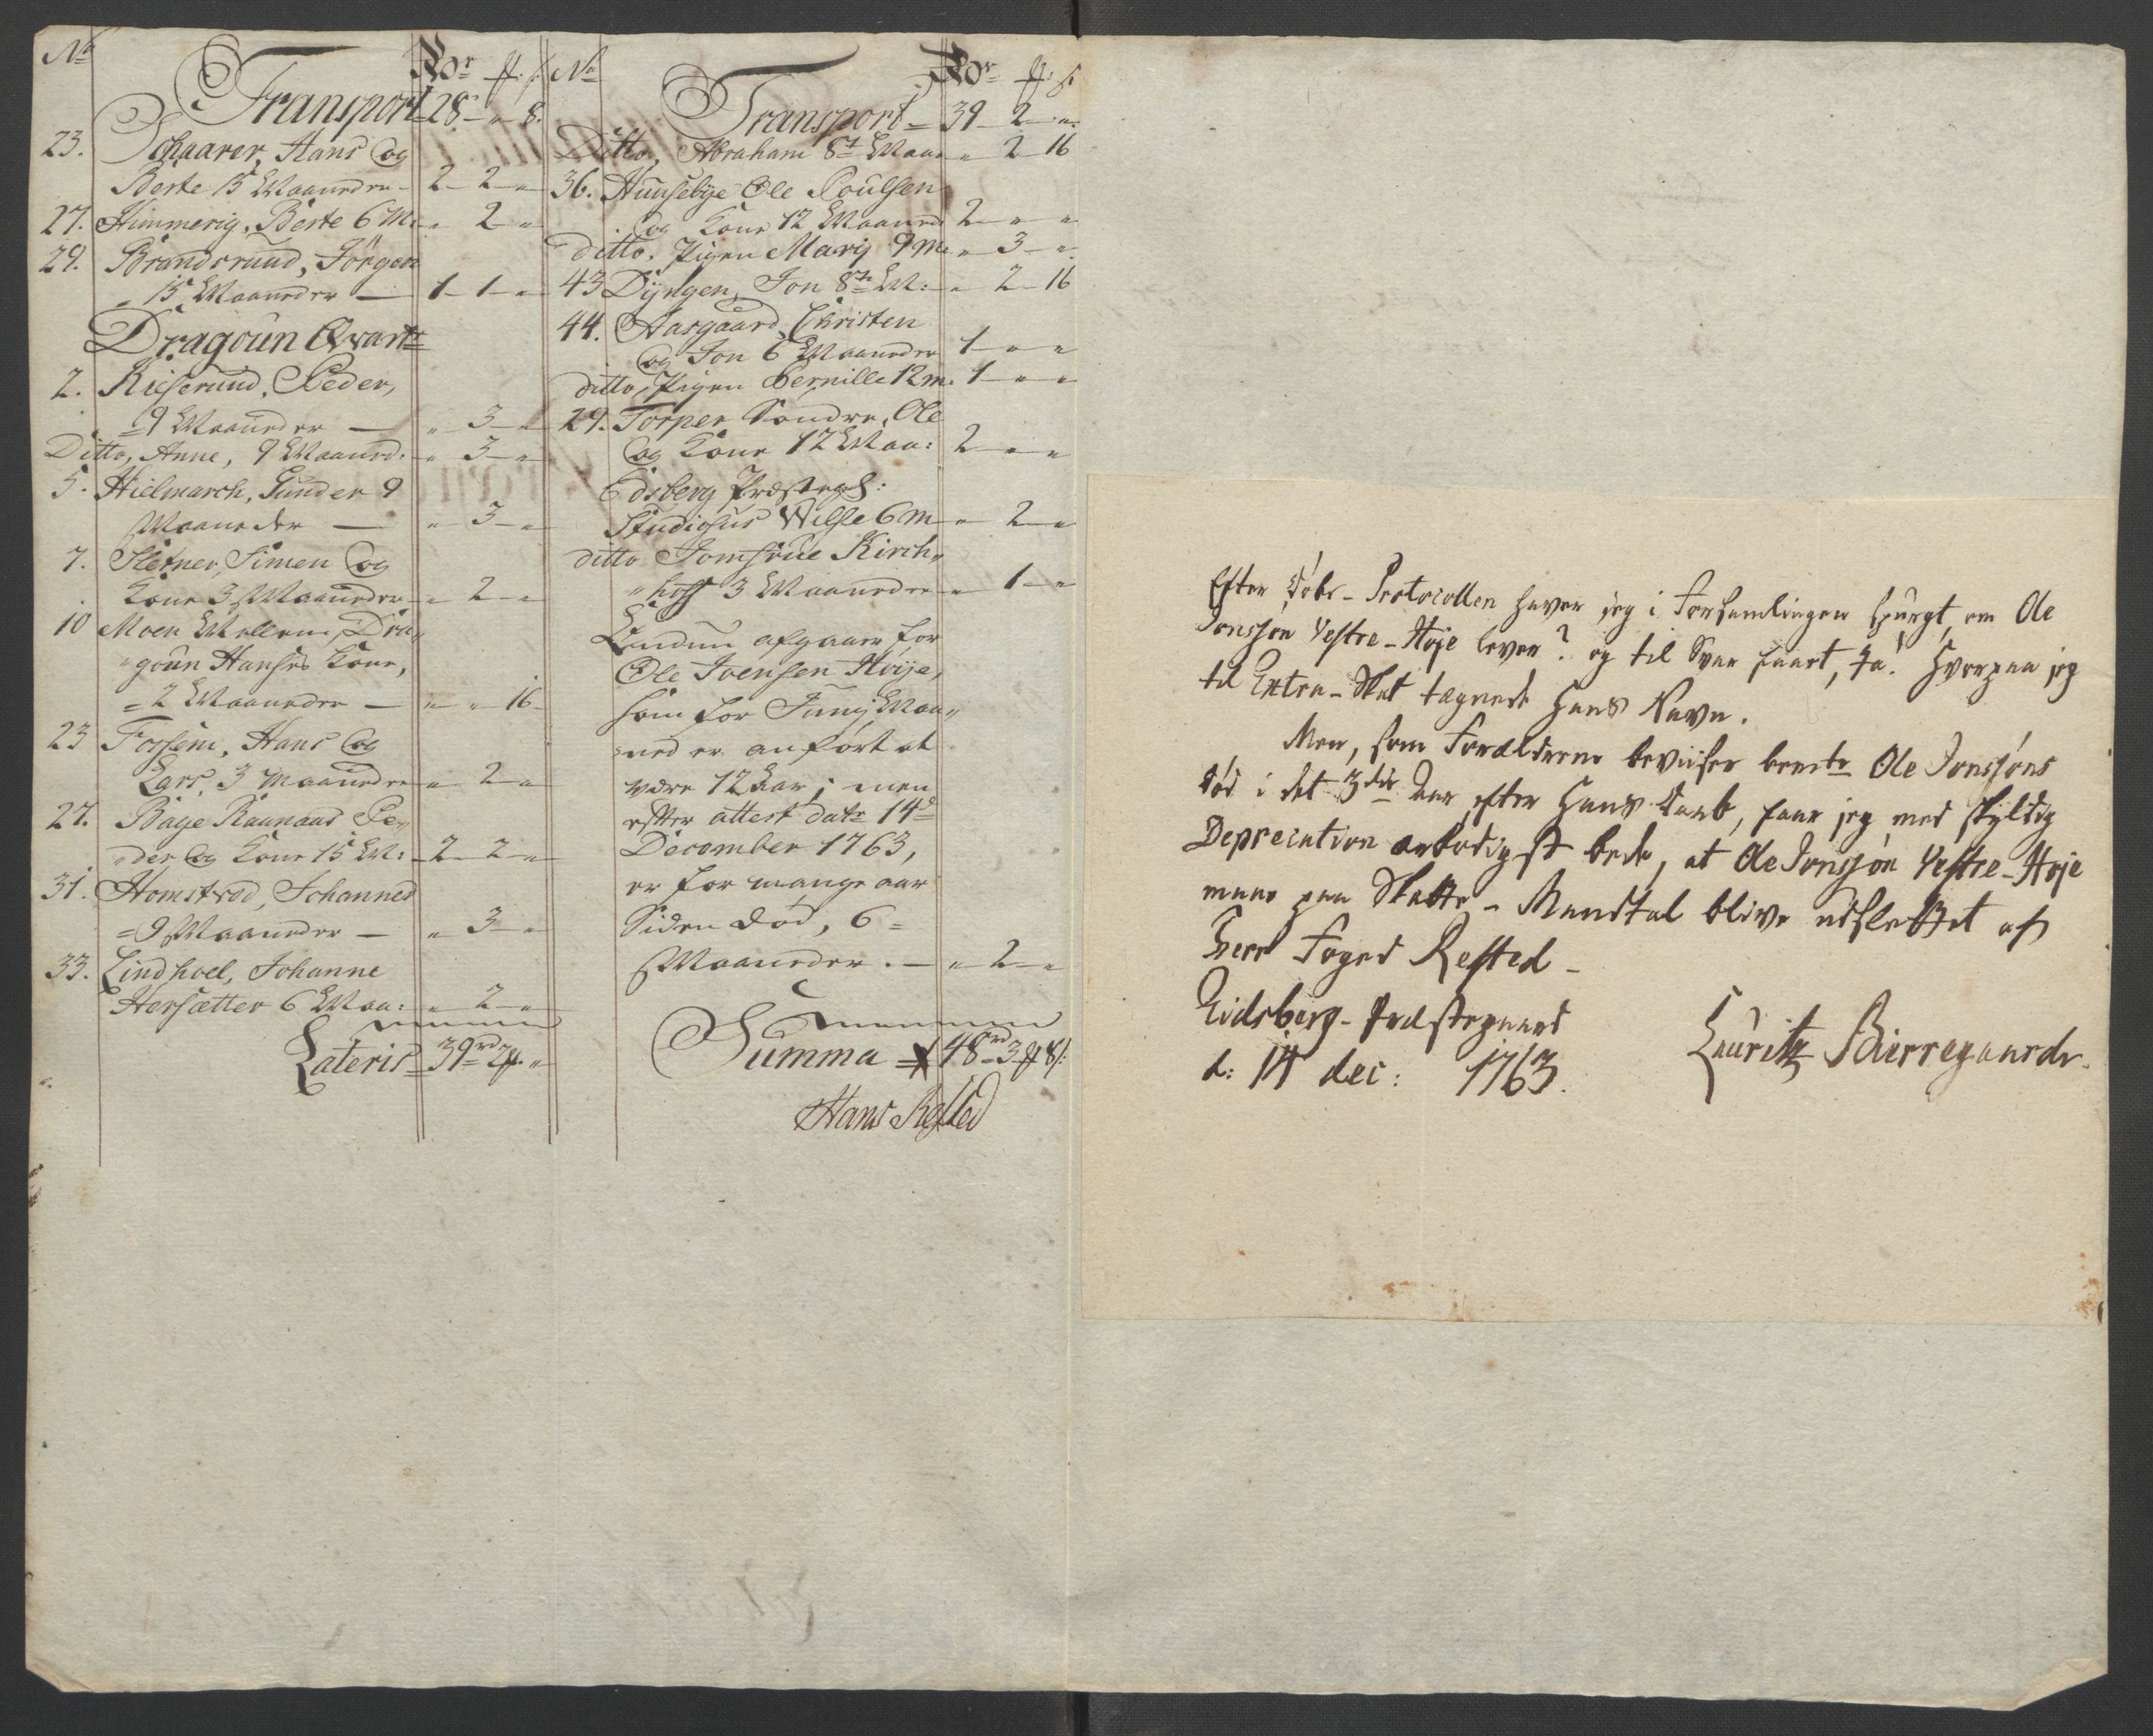 No
Rdr ff. s.
Transport 28 - " - 8.
23. Schaarer, Hans og
Berte 15 Maaneder - 2 - 2 - "
27. Himmerig, Berte 6 M: " 2 - "
29. Brandsruud, Jörgen
" 15 Maaneder — 1 - 1 - "
Dragoun Qvartr
2. Kiiserund, Peder,
= 9 Maaneder — " 3 - "
Ditto, Anne, 9 Maaned: " 3 - "
5. Hielmarch, Gunder 9
Maaneder — " 3 - "
7. Sletner, Simen og
Kone 3 Maaneder - " 2 - "
10 Moen Mellem, Dra"
"goun Hanses Kone,
= 2 Maaneder — " " 16
23 Fossem, Hans og
Lars, 3 Maaneder " 2 - "
27. Bage Raanaas Pe"
"der og Kone 15 M: 2 - 2 - "
31. Homstved, Johannes
= 9 Maaneder — " 3 - "
33. Lindhoel, Johanne
Hersætter 6 Maa: " 2 - "
Lateris 39rd 2ff. "
No
Rdr ff. s.
Transport = 39 - 2 - "
Ditto, Abraham 8t Maa: " 2 - 16
36. Huusebye Ole Poulsen
og Kone 12 Maaned 2 - " - "
ditto. Pigen Marij 9 M. " 3 - "
43 Dÿngen, Jon 8te M: " 2 - 16
44. Aasgaard, Christen
og Jon 6 Maaneder 1 - " - "
ditto, Pigen Pernille 12 m. 1 - " - "
29. Torper Søndre, Ole
og Kone 12 Maa: 2 - " - "
Edsberg Præstegd:
Studiosus Wilse 6 M " 2 - "
ditto Jomfrue Kirch"
"hoff 3 Maaneder " 1 - "
Endnu afgaaer for
Ole Joensen Høije,
som for Junij Maa"
"ned er anført at
være 12 Aar; men
efter attest datr 14d
December 1763,
er for mange aar
Siden död, 6 =
Maaneder. — " 2 - "
Summa 48rd 3ff 8s:
Hans Rested
Efter Døbe-Protocollen haver jeg i Forsamlingen spurgt, om Ole
Jonssøn Vestre-Høje lever? og til Svar faaet, Ja! Hvorpaa jeg
til Extra-Skat tegnede hans Navn.
Men, som Forældrene beviiser bemte Ole Jonssøns
død i det 3die Aar efter hans Daab, faar jeg med skyldig
Depreciation ærbødigst bede, at Ole Jonssøn Vestre-Høje
maae paa Skatte-Mandtal blive udslettet af
Herr Foged Rested -
Eidsberg-Præstegaard
d: 14 dec: 1763.
Lauritz Bierregaardr.